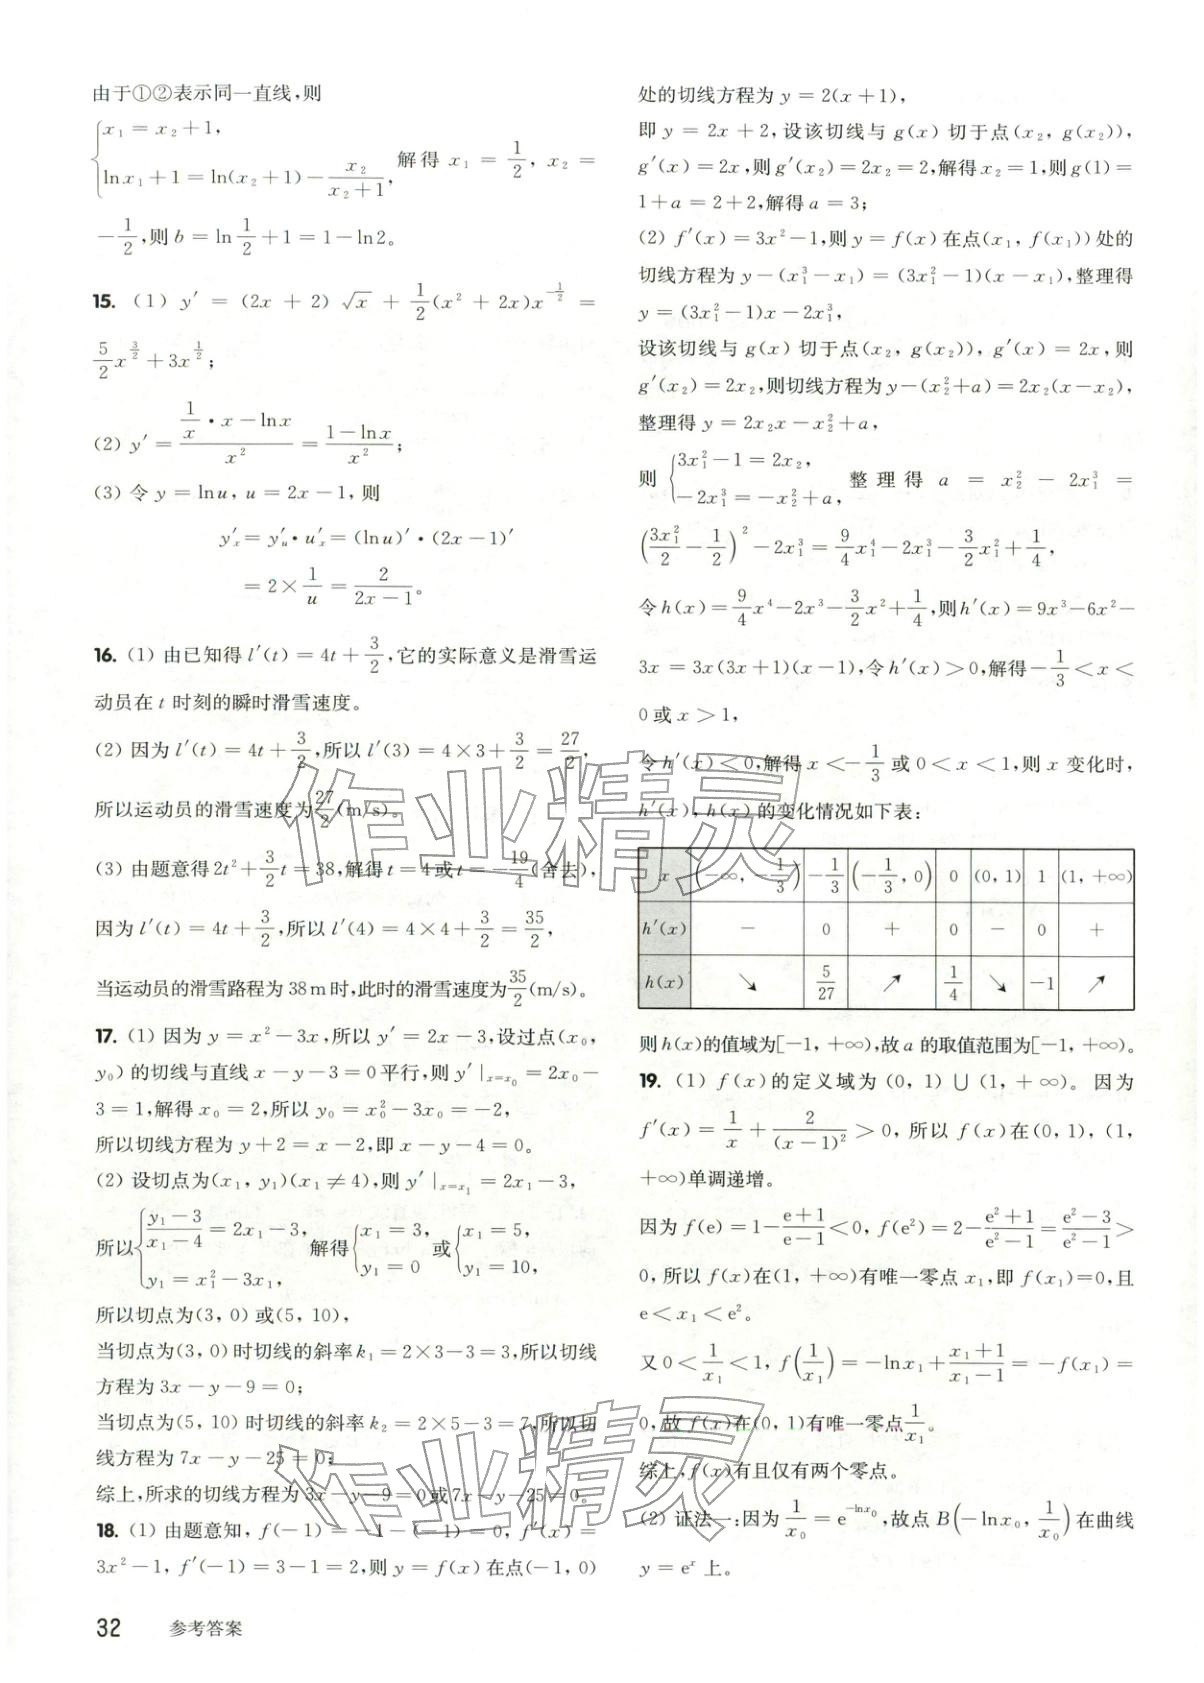 由于①②表示同一直线,则
{x₁=x₂+1, lnx₁+1=ln(x₂+1)-x₂/(x₂+1), 解得 x₁=1/2, x₂=
-1/2,则 b=ln1/2+1=1-ln2。
15. (1) y′=(2x+2)√x+1/2(x²+2x)x^(-1/2)=
5/2x^(3/2)+3x^(1/2);
(2) y′=(1/x·x-lnx)/x²=(1-lnx)/x²;
(3) 令 y=lnu, u=2x-1, 则
y′ₓ=y′ᵤ·u′ₓ=(lnu)′·(2x-1)′
=2×1/u=2/(2x-1)。
16. (1) 由已知得 l′(t)=4t+3/2,它的实际意义是滑雪运
动员在 t 时刻的瞬时滑雪速度。
(2) 因为 l′(t)=4t+3/2,所以 l′(3)=4×3+3/2=27/2,
所以运动员的滑雪速度为27/2(m/s)。
(3) 由题意得 2t²+3/2t=38,解得 t=4 或 t=-19/4(舍去),
因为 l′(t)=4t+3/2,所以 l′(4)=4×4+3/2=35/2,
当运动员的滑雪路程为 38 m 时,此时的滑雪速度为35/2(m/s)。
17. (1) 因为 y=x²-3x,所以 y′=2x-3,设过点(x₀,
y₀) 的切线与直线 x-y-3=0平行,则 y′|ₓ₌ₓ₀=2x₀-
3=1,解得 x₀=2,所以 y₀=x₀²-3x₀=-2,
所以切线方程为 y+2=x-2,即 x-y-4=0。
(2) 设切点为(x₁, y₁)(x₁≠4),则 y′|ₓ₌ₓ₁=2x₁-3,
所以{(y₁-3)/(x₁-4)=2x₁-3, y₁=x₁²-3x₁, 解得{x₁=3, y₁=0 或{x₁=5, y₁=10,
所以切点为(3, 0) 或(5, 10),
当切点为(3, 0) 时切线的斜率 k₁=2×3-3=3,所以切线
方程为 3x-y-9=0;
当切点为(5, 10) 时切线的斜率 k₂=2×5-3=7,所以切
线方程为 7x-y-25=0;
综上,所求的切线方程为 3x-y-9=0或 7x-y-25=0。
18. (1) 由题意知, f(-1)=-1-(-1)=0, f′(x)=
3x²-1, f′(-1)=3-1=2,则 y=f(x) 在点(-1, 0)
32 参考答案
处的切线方程为 y=2(x+1),
即 y=2x+2,设该切线与 g(x) 切于点(x₂, g(x₂)),
g′(x)=2x,则 g′(x₂)=2x₂=2,解得 x₂=1,则 g(1)=
1+a=2+2,解得 a=3;
(2) f′(x)=3x²-1,则 y=f(x) 在点(x₁, f(x₁)) 处的
切线方程为 y-(x₁³-x₁)=(3x₁²-1)(x-x₁),整理得
y=(3x₁²-1)x-2x₁³,
设该切线与 g(x) 切于点(x₂, g(x₂)), g′(x)=2x,则
g′(x₂)=2x₂,则切线方程为 y-(x₂²+a)=2x₂(x-x₂),
整理得 y=2x₂x-x₂²+a,
则{3x₁²-1=2x₂, -2x₁³=-x₂²+a, 整理得 a=x₂²-2x₁³=
(3x₁²/2-1/2)²-2x₁³=9/4x₁⁴-2x₁³-3/2x₁²+1/4,
令 h(x)=9/4x⁴-2x³-3/2x²+1/4,则 h′(x)=9x³-6x²-
3x=3x(3x+1)(x-1),令 h′(x)>0,解得-1/3<x<
0 或 x>1,
令 h′(x)<0,解得 x<-1/3 或 0<x<1,则 x 变化时,
h′(x), h(x) 的变化情况如下表:
x (-∞, -1/3) -1/3 (-1/3, 0) 0 (0, 1) 1 (1, +∞)
h′(x) - 0 + 0 - 0 +
h(x) ↘ 5/27 ↗ 1/4 ↘ -1 ↗
则 h(x)的值域为[-1, +∞),故 a 的取值范围为[-1, +∞)。
19. (1) f(x) 的定义域为(0, 1)∪(1, +∞)。因为
f′(x)=1/x+2/(x-1)²>0, 所以 f(x) 在(0, 1), (1,
+∞)单调递增。
因为 f(e)=1-(e+1)/(e-1)<0, f(e²)=2-(e²+1)/(e²-1)=(e²-3)/(e²-1)>
0,所以 f(x)在(1, +∞)有唯一零点 x₁,即 f(x₁)=0,且
e<x₁<e²。
又 0<1/x₁<1, f(1/x₁)=-lnx₁+(x₁+1)/(x₁-1)=-f(x₁)=
0,故 f(x)在(0, 1)有唯一零点1/x₁。
综上, f(x)有且仅有两个零点。
(2) 证法一:因为1/x₀=e^(-lnx₀),故点 B(-lnx₀, 1/x₀)在曲线
y=eˣ 上。
作业精灵
作业精灵